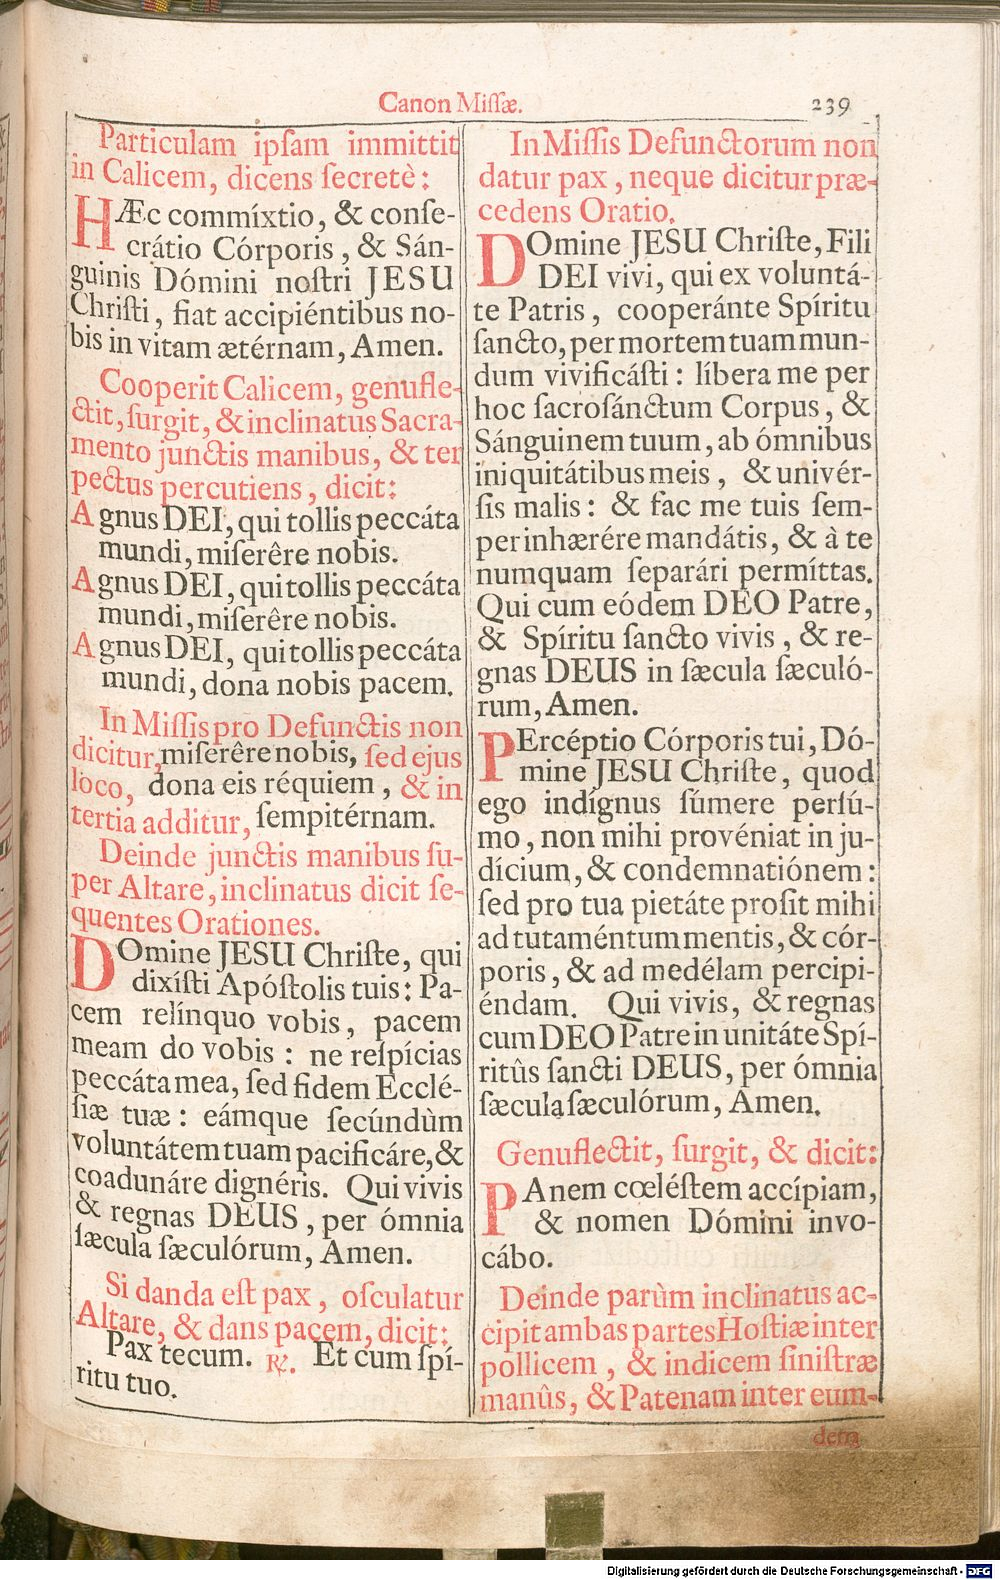 Canon Miſſæ.
239
Particulam ipſam immittit
in Calicem, dicens ſecretè:
HÆc commíxtio, & conſe-
crátio Córporis, & Sán-
guinis Dómini noſtri JESU
Chriſti, fiat accipiéntibus no-
bis in vitam ætérnam, Amen.
Cooperit Calicem, genufle-
ctit, ſurgit, & inclinatus Sacra-
mento junctis manibus, & ter
pectus percutiens, dicit:
Agnus DEI, qui tollis peccáta
mundi, miſerêre nobis.
Agnus DEI, qui tollis peccáta
mundi, miſerêre nobis.
Agnus DEI, qui tollis peccáta
mundi, dona nobis pacem.
In Miſſis pro Defunctis non
dicitur, miſerêre nobis, ſed ejus
loco, dona eis réquiem, & in
tertia additur, ſempitérnam.
Deinde junctis manibus ſu-
per Altare, inclinatus dicit ſe-
quentes Orationes.
DOmine JESU Chriſte, qui
dixíſti Apóſtolis tuis: Pa-
cem relínquo vobis, pacem
meam do vobis: ne reſpícias
peccáta mea, ſed fidem Ecclé-
ſiæ tuæ: eámque ſecúndùm
voluntátem tuam pacificáre, &
coadunáre dignéris. Qui vivis
& regnas DEUS, per ómnia
ſæcula ſæculórum, Amen.
Si danda eſt pax, oſculatur
Altare, & dans pacem, dicit:
Pax tecum. ℟. Et cum ſpí-
ritu tuo.
In Miſſis Defunctorum non
datur pax, neque dicitur præ-
cedens Oratio.
DOmine JESU Chriſte, Fili
DEI vivi, qui ex voluntá-
te Patris, cooperánte Spíritu
ſancto, per mortem tuam mun-
dum vivificáſti: líbera me per
hoc ſacroſánctum Corpus, &
Sánguinem tuum, ab ómnibus
iniquitátibus meis, & univér-
ſis malis: & fac me tuis ſem-
per inhærére mandátis, & à te
numquam ſeparári permíttas.
Qui cum eódem DEO Patre,
& Spíritu ſancto vivis, & re-
gnas DEUS in ſæcula ſæculó-
rum, Amen.
PErcéptio Córporis tui, Dó-
mine JESU Chriſte, quod
ego indígnus ſúmere perſú-
mo, non mihi provéniat in ju-
dícium, & condemnatiónem:
ſed pro tua pietáte proſit mihi
ad tutaméntum mentis, & cór-
poris, & ad medélam percipi-
éndam. Qui vivis, & regnas
cum DEO Patre in unitáte Spí-
ritûs ſancti DEUS, per ómnia
ſæcula ſæculórum, Amen.
Genuflectit, ſurgit, & dicit:
PAnem cœléſtem accípiam,
& nomen Dómini invo-
cábo.
Deinde parùm inclinatus ac-
cipit ambas partes Hoſtiæ inter
pollicem, & indicem ſiniſtræ
manûs, & Patenam inter eum-
dem
Digitalisierung gefördert durch die Deutsche Forschungsgemeinschaft - DFG